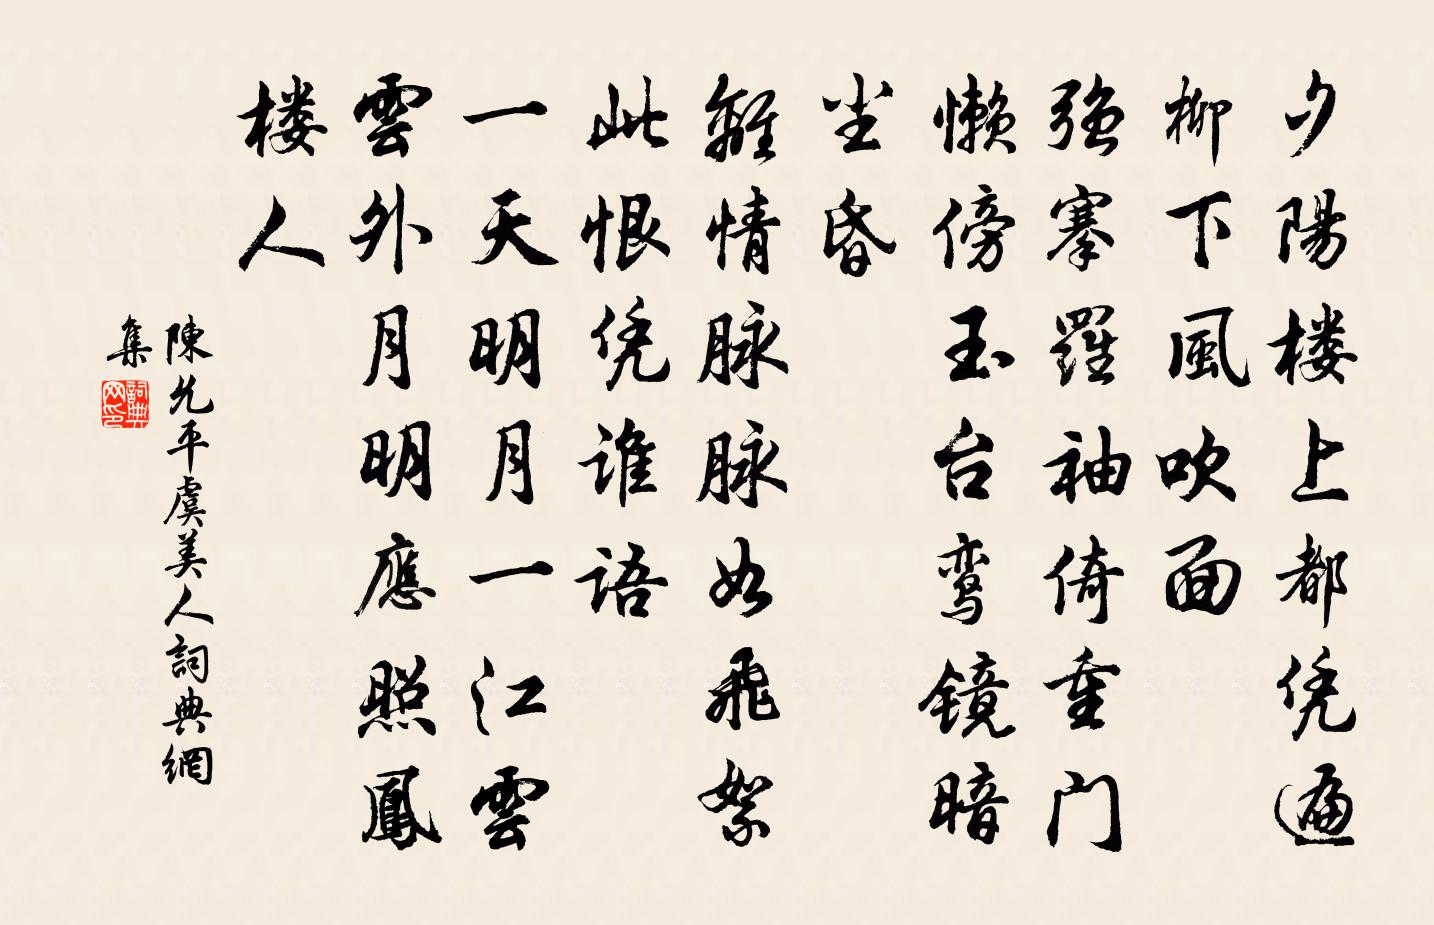 夕陽楼上都凭遍
柳下風吹面
强搴羅袖倚重门
懒傍玉台鸾镜暗
尘昏
離情脉脉如飛絮
此恨凭谁语
一天明月一江雲
雲外月明應照鳳
楼人
陳允平虞美人詞典網
集
詞典网印